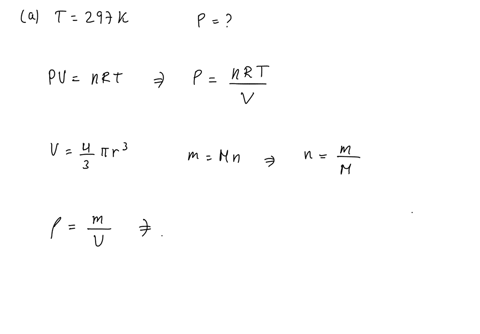 (a) T = 297 K P = ?
PV = nRT ⇒ P = nRT / V
V = 4/3 πr³ m = Mn ⇒ n = m / M
ρ = m / V ⇒